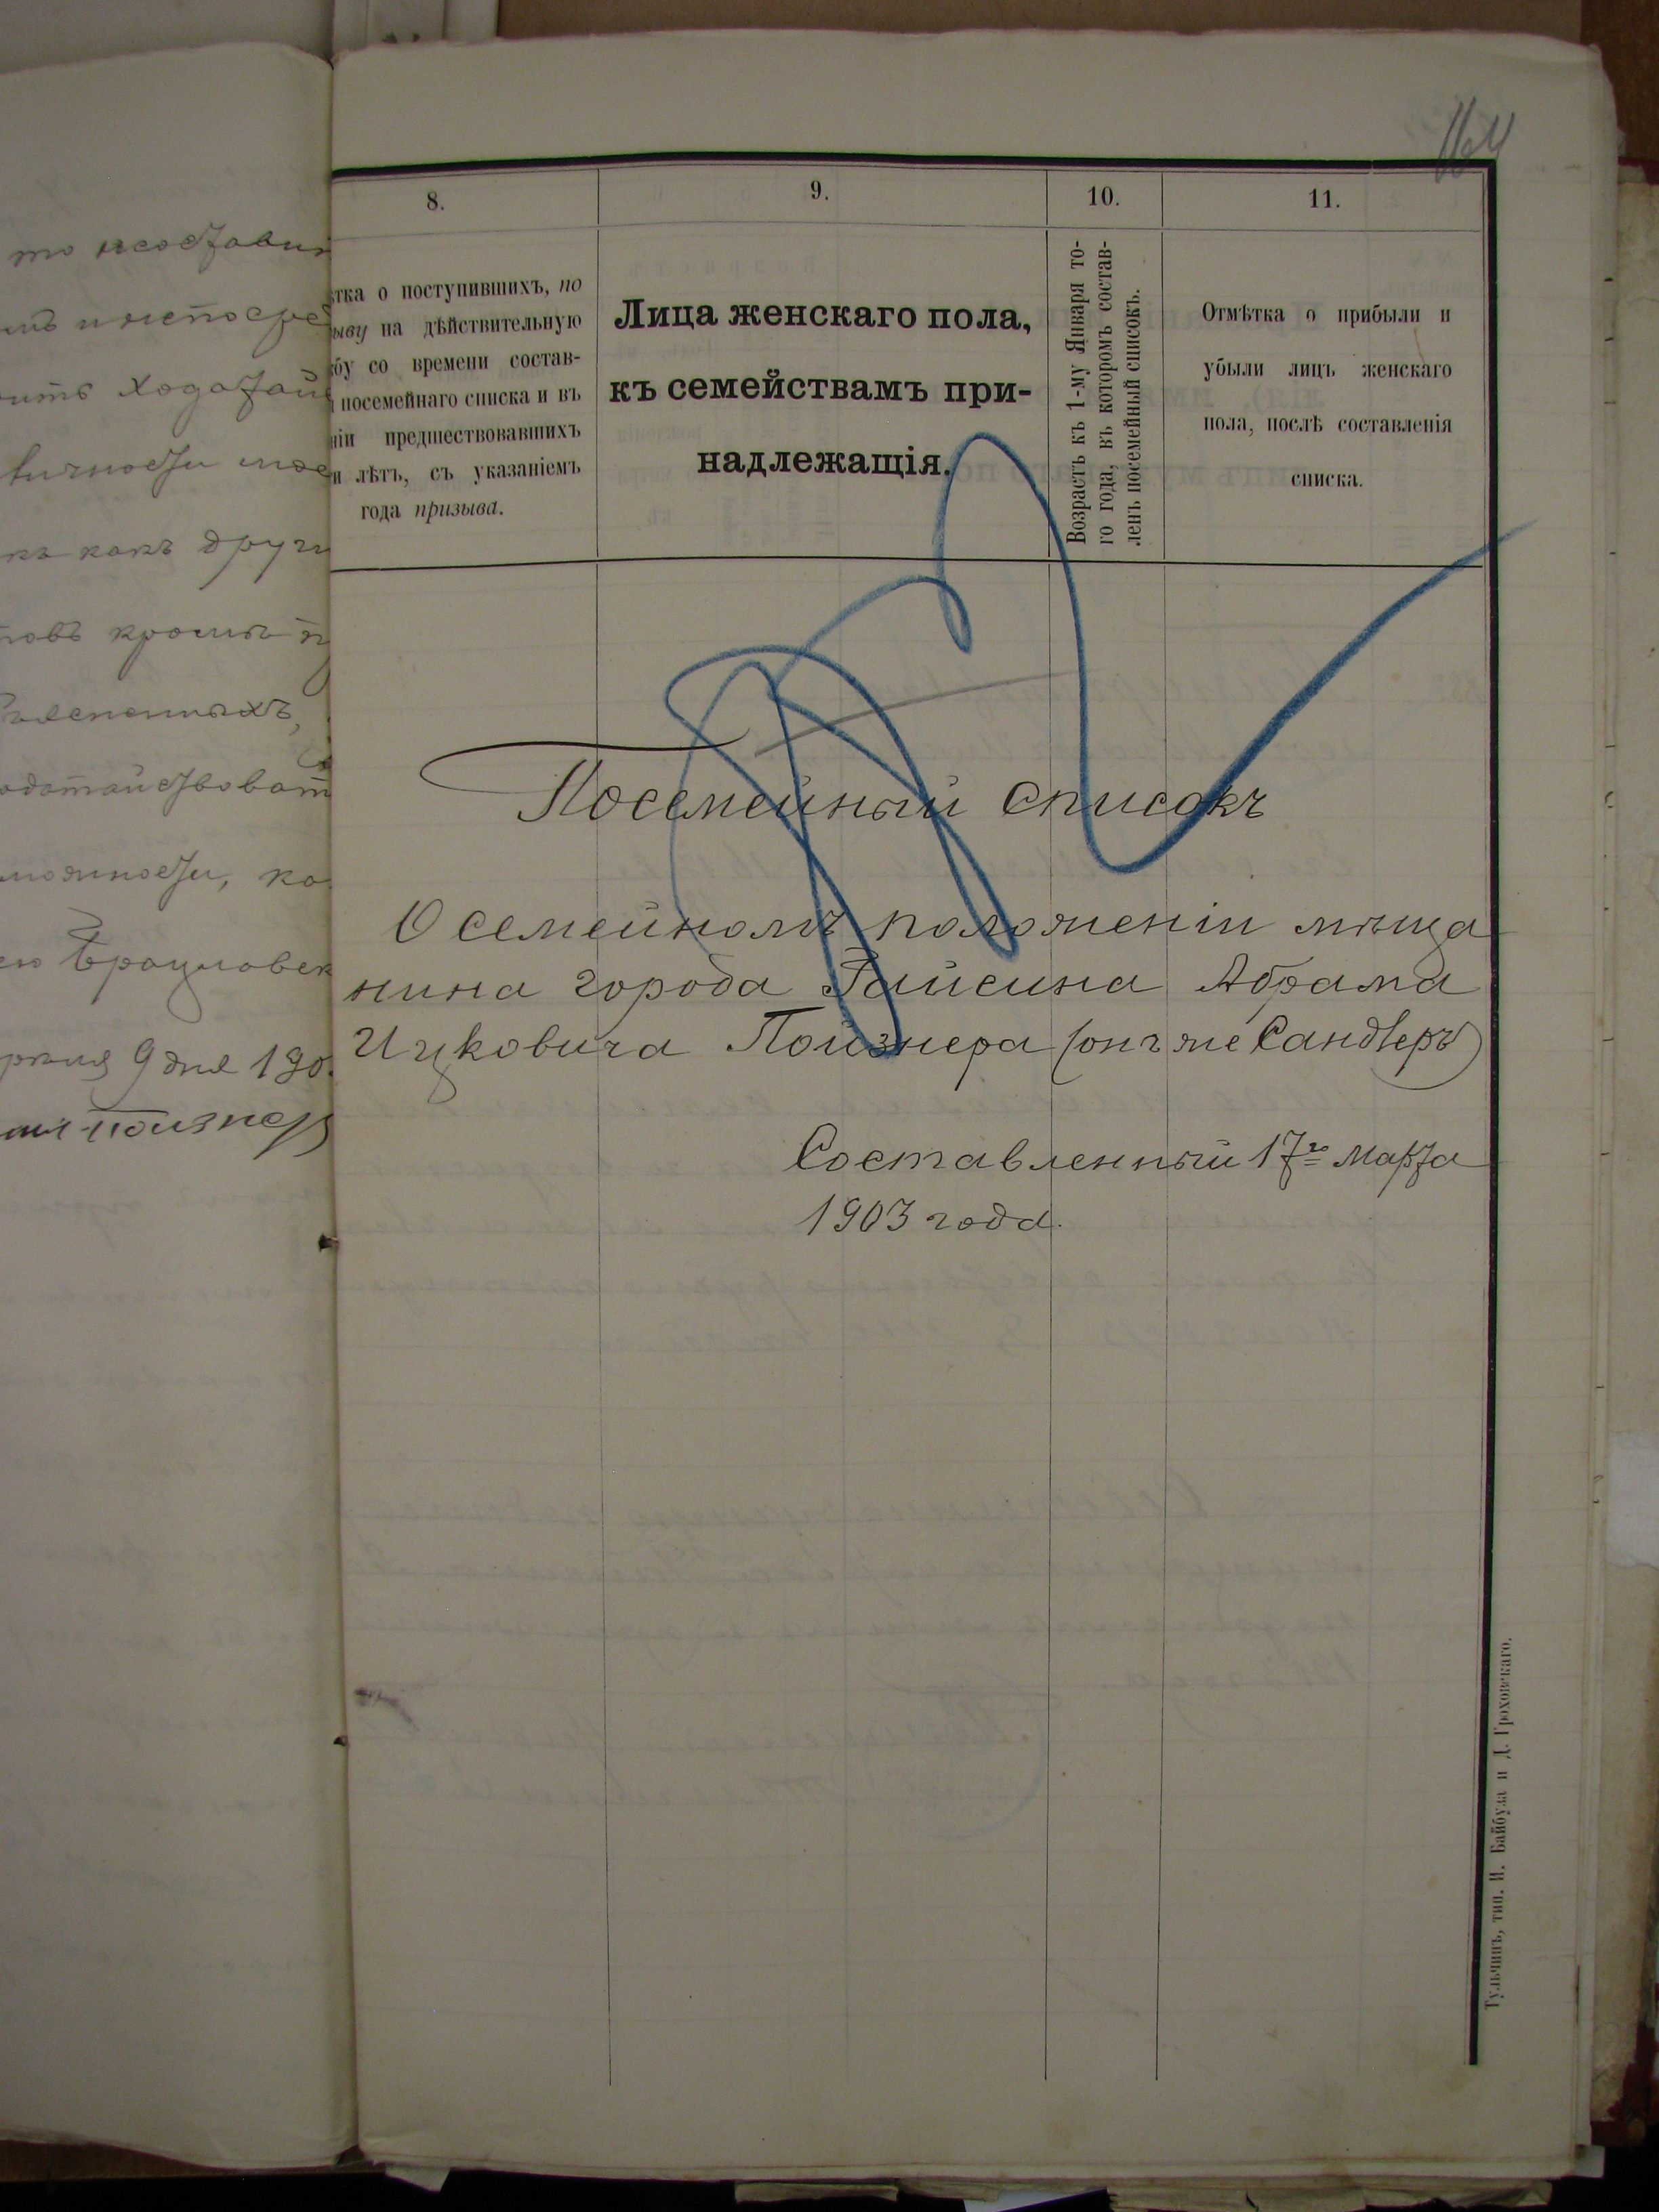 то
ить Ходатай
какъ други
товъ кромѣ
одотайствоват
ко
9 дня 190
Поизнер
8.
тка о поступившихъ, по
ыву на дѣйствительную
бу со времени состав-
посемейнаго списка и въ
ніи предшествовавшихъ
и лѣтъ, съ указаніемъ
года призыва.
9.
Лица женскаго пола,
къ семействамъ при-
надлежащія.
10.
Возрастъ къ 1-му Января то-
го года, въ которомъ состав-
ленъ посемейный списокъ.
11.
Отмѣтка о прибыли и
убыли лицъ женскаго
пола, послѣ составленія
списка.
Посемейный списокъ
О семейномъ положеніи мѣща
нина города Гайсина Абрама
Ицковича Пойзнера (онъ же Сандлеръ)
Составленный 17го марта
1903 года.
Тульчинъ, тип. И. Байбуза и Д. Гроховскаго.